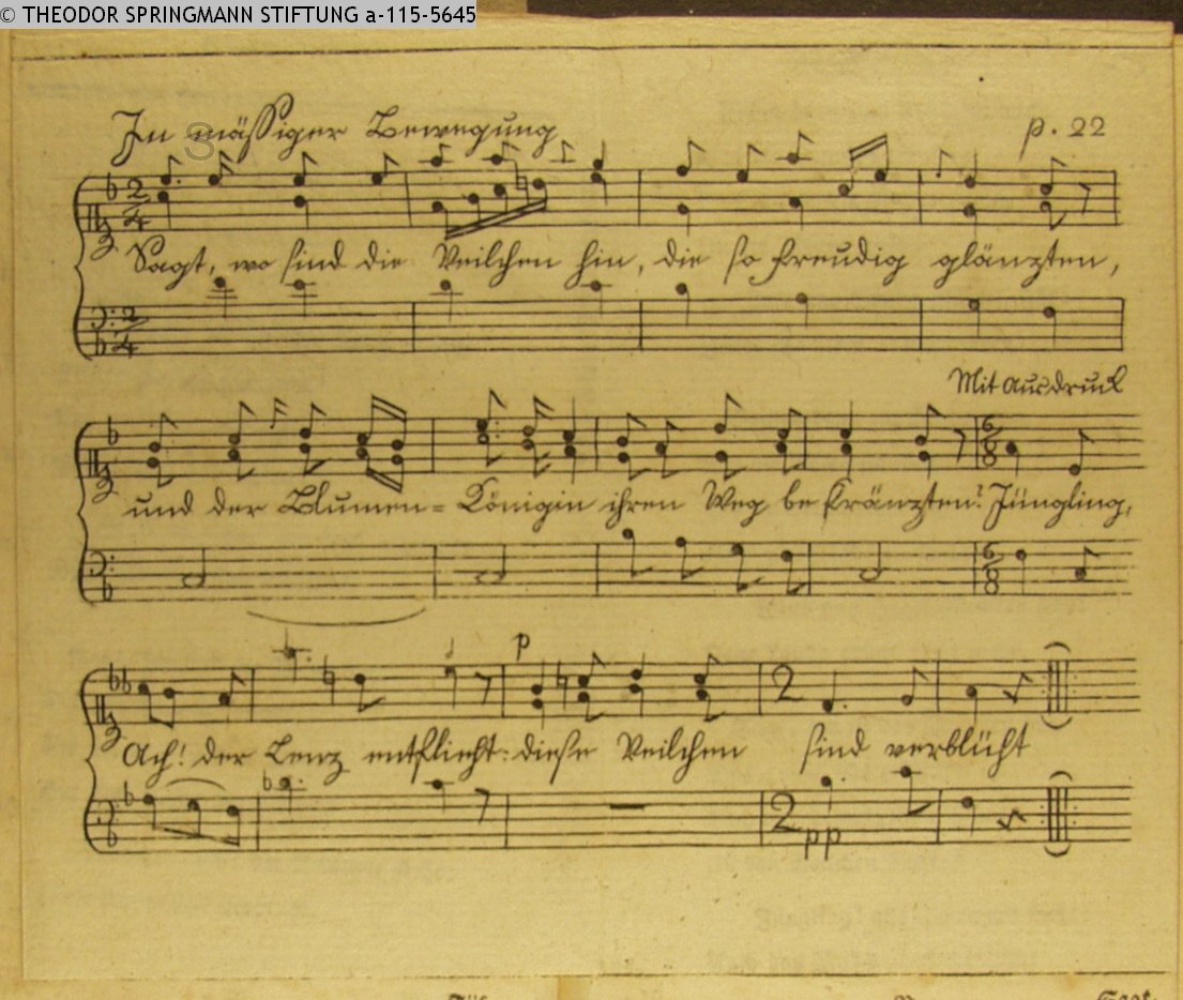 © THEODOR SPRINGMANN STIFTUNG a-115-5645
In mäßiger Bewegung
p. 22
3
Sagt, wo sind die Veilchen hin, die so freudig glänzten,
Mit Ausdruck
und der Blumen=Königin ihren Weg bekränzten? Jüngling,
p
Ach! der Lenz entflieht: diese Veilchen sind verblüht
pp